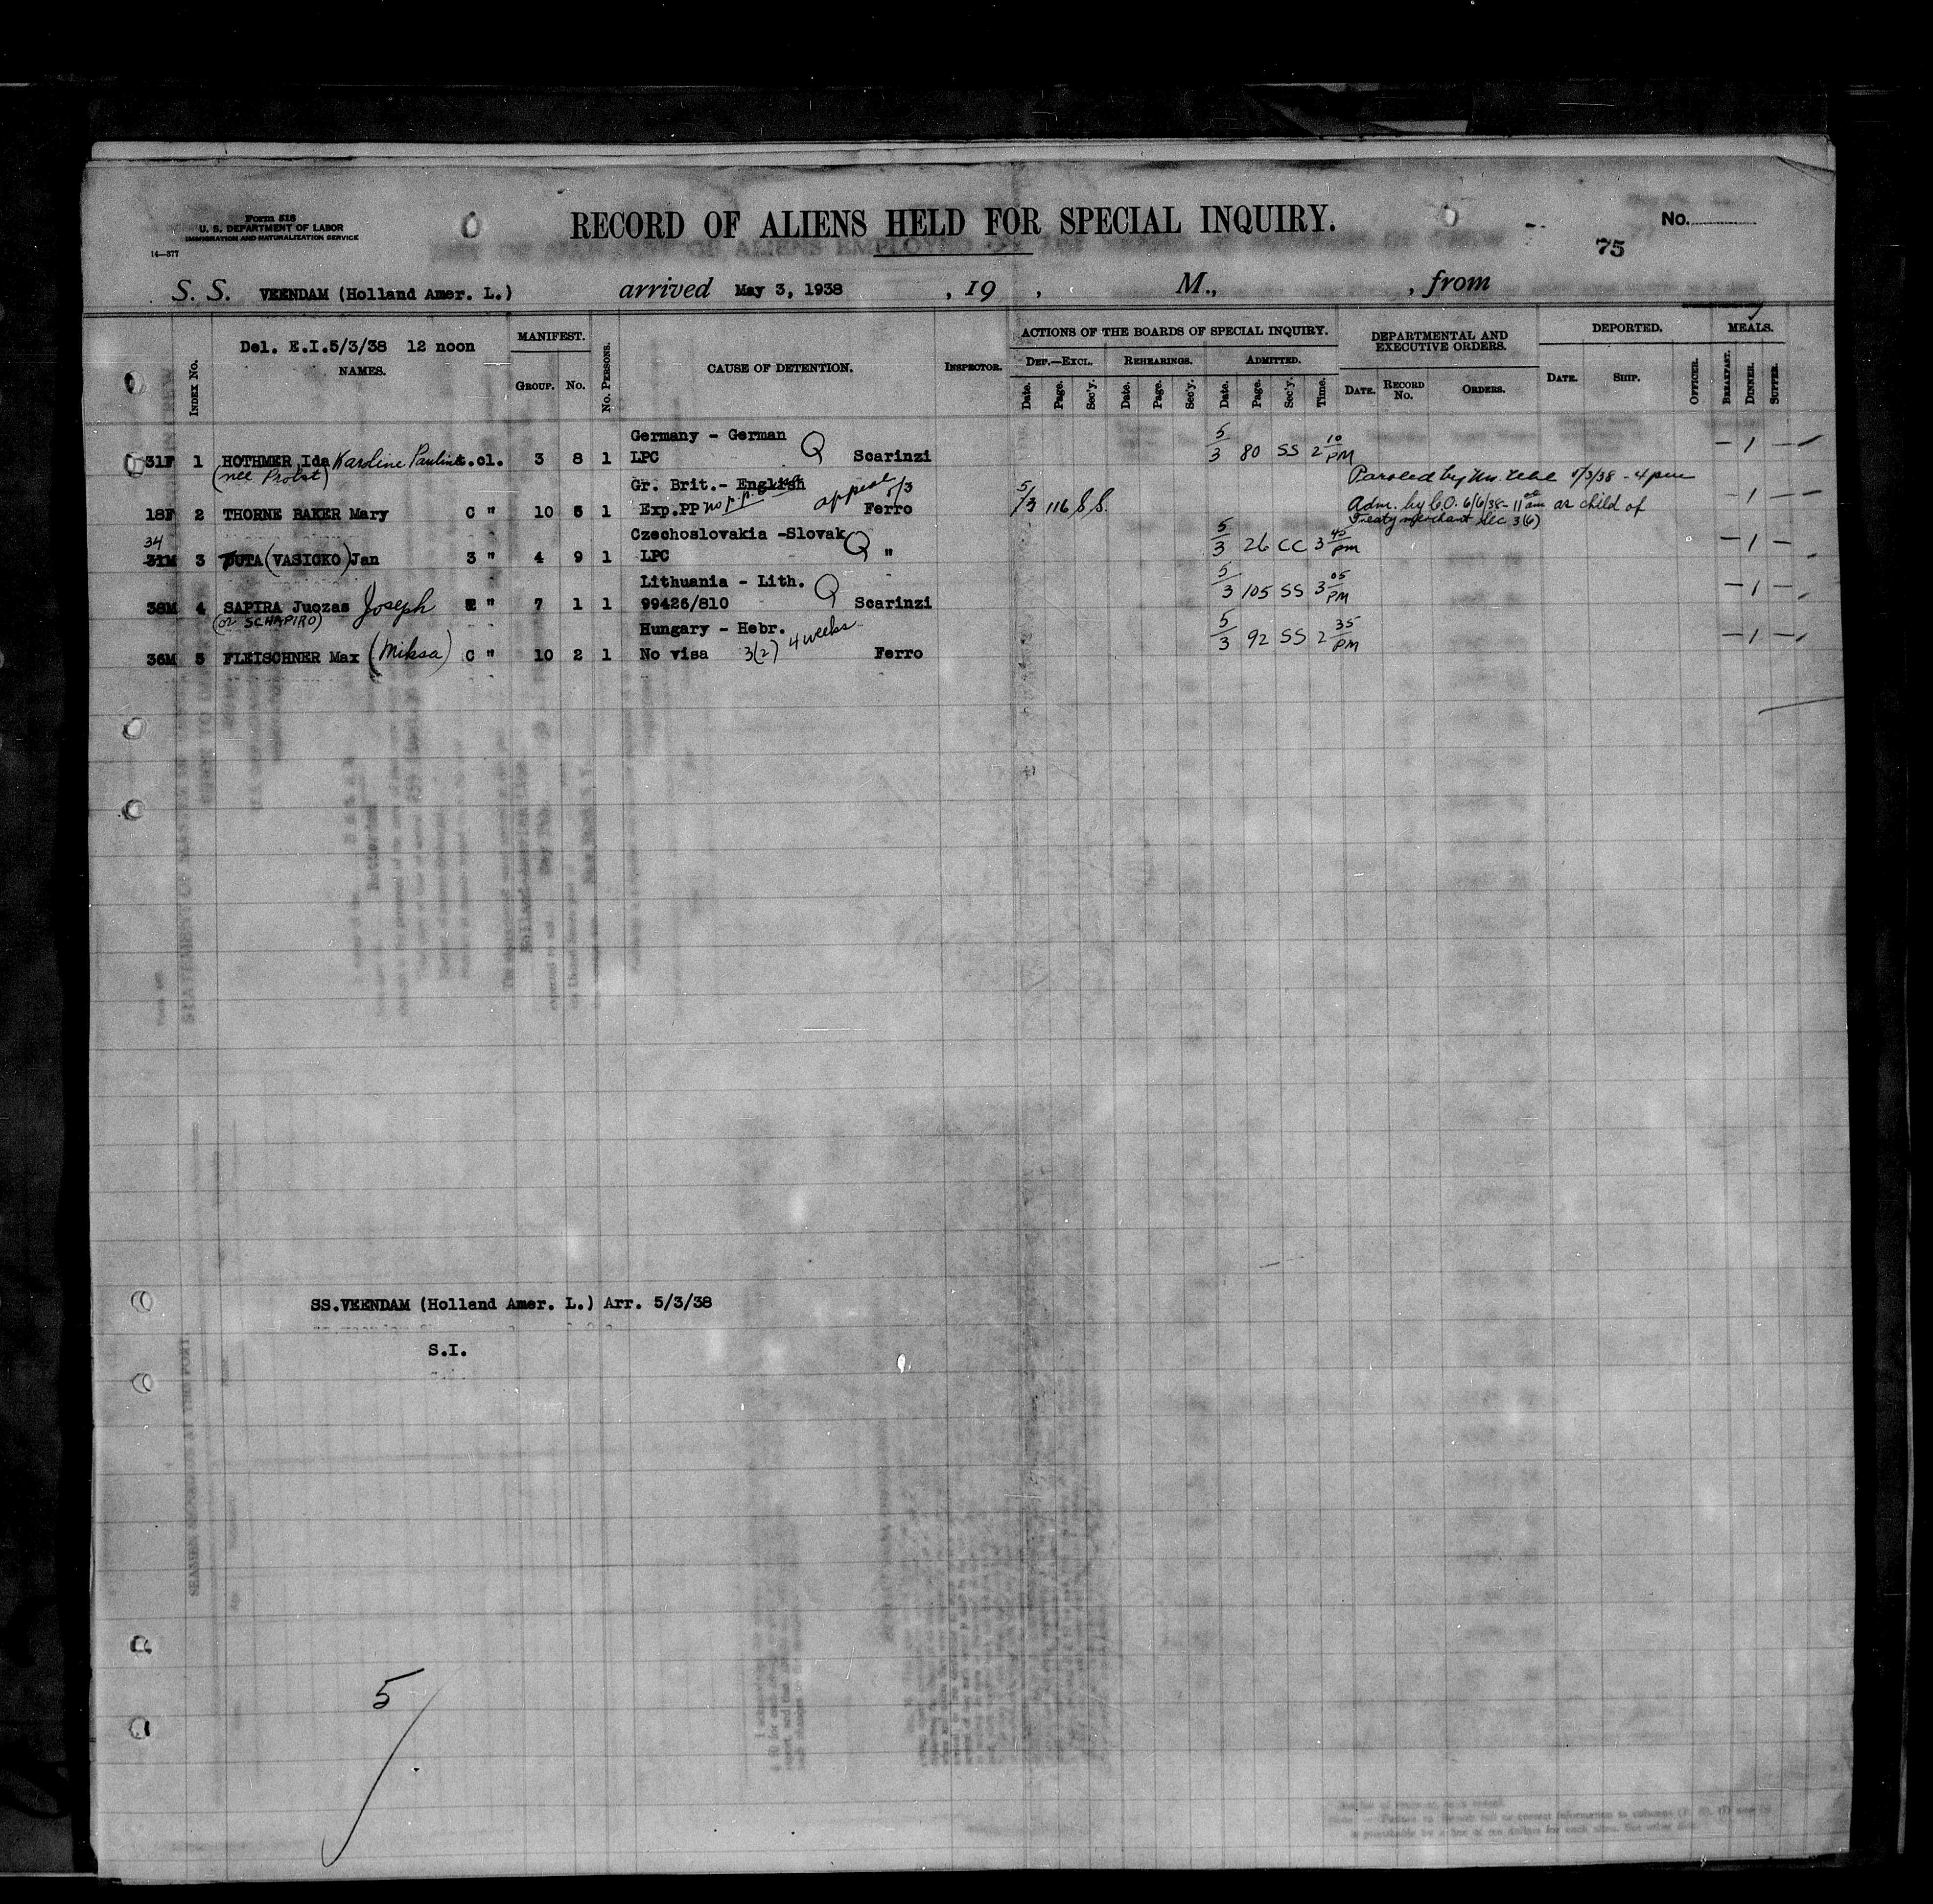 Form 518
U. S. DEPARTMENT OF LABOR
IMMIGRATION AND NATURALIZATION SERVICE
14—377
RECORD OF ALIENS HELD FOR SPECIAL INQUIRY.
No.
75
S. S. VEENDAM (Holland Amer. L.) arrived May 3, 1938 , 19 , M., , from
Index No.
Del. E.I.5/3/38 12 noon
NAMES.
MANIFEST.
Group. No.
No. Persons.
CAUSE OF DETENTION.
Inspector.
ACTIONS OF THE BOARDS OF SPECIAL INQUIRY.
Def.—Excl. Rehearings. Admitted.
Date. Page. Sec'y. Date. Page. Sec'y. Date. Page. Sec'y. Time.
DEPARTMENTAL AND
EXECUTIVE ORDERS.
Date. Record No. Orders.
DEPORTED.
Date. Ship.
Officer.
MEALS.
Breakfast. Dinner. Supper.
Germany - German
31F 1 HOTHMER, Ida Karoline Pauline t.cl. 3 8 1 LPC Q Scarinzi 5/3 80 SS 2 10 PM — 1 —
(nee Probst)
Gr. Brit.- English appeal 5/3
18F 2 THORNE BAKER Mary C " 10 5 1 Exp.PP no p.p. Ferro 5/3 116 SS. — 1 —
Paroled by Mr. Uhl 5/3/38 - 4 pm
Adm. by C.O. 6/6/38 - 11 am as child of
Treaty merchant Sec 3(6)
34
Czechoslovakia -Slovak
31M 3 DUTA (VASICKO) Jan 3 " 4 9 1 LPC Q " 5/3 26 CC 3 45 PM — 1 —
Lithuania - Lith.
38M 4 SAPIRA Juozas Joseph " 7 1 1 99426/810 Q Scarinzi 5/3 105 SS 3 05 PM — 1 —
(or SCHAPIRO)
Hungary - Hebr. 4 weeks
36M 5 FLEISCHNER Max (Miksa) C " 10 2 1 No visa 3(2) Ferro 5/3 92 SS 2 35 PM — 1 —
SS.VEENDAM (Holland Amer. L.) Arr. 5/3/38
S.I.
5